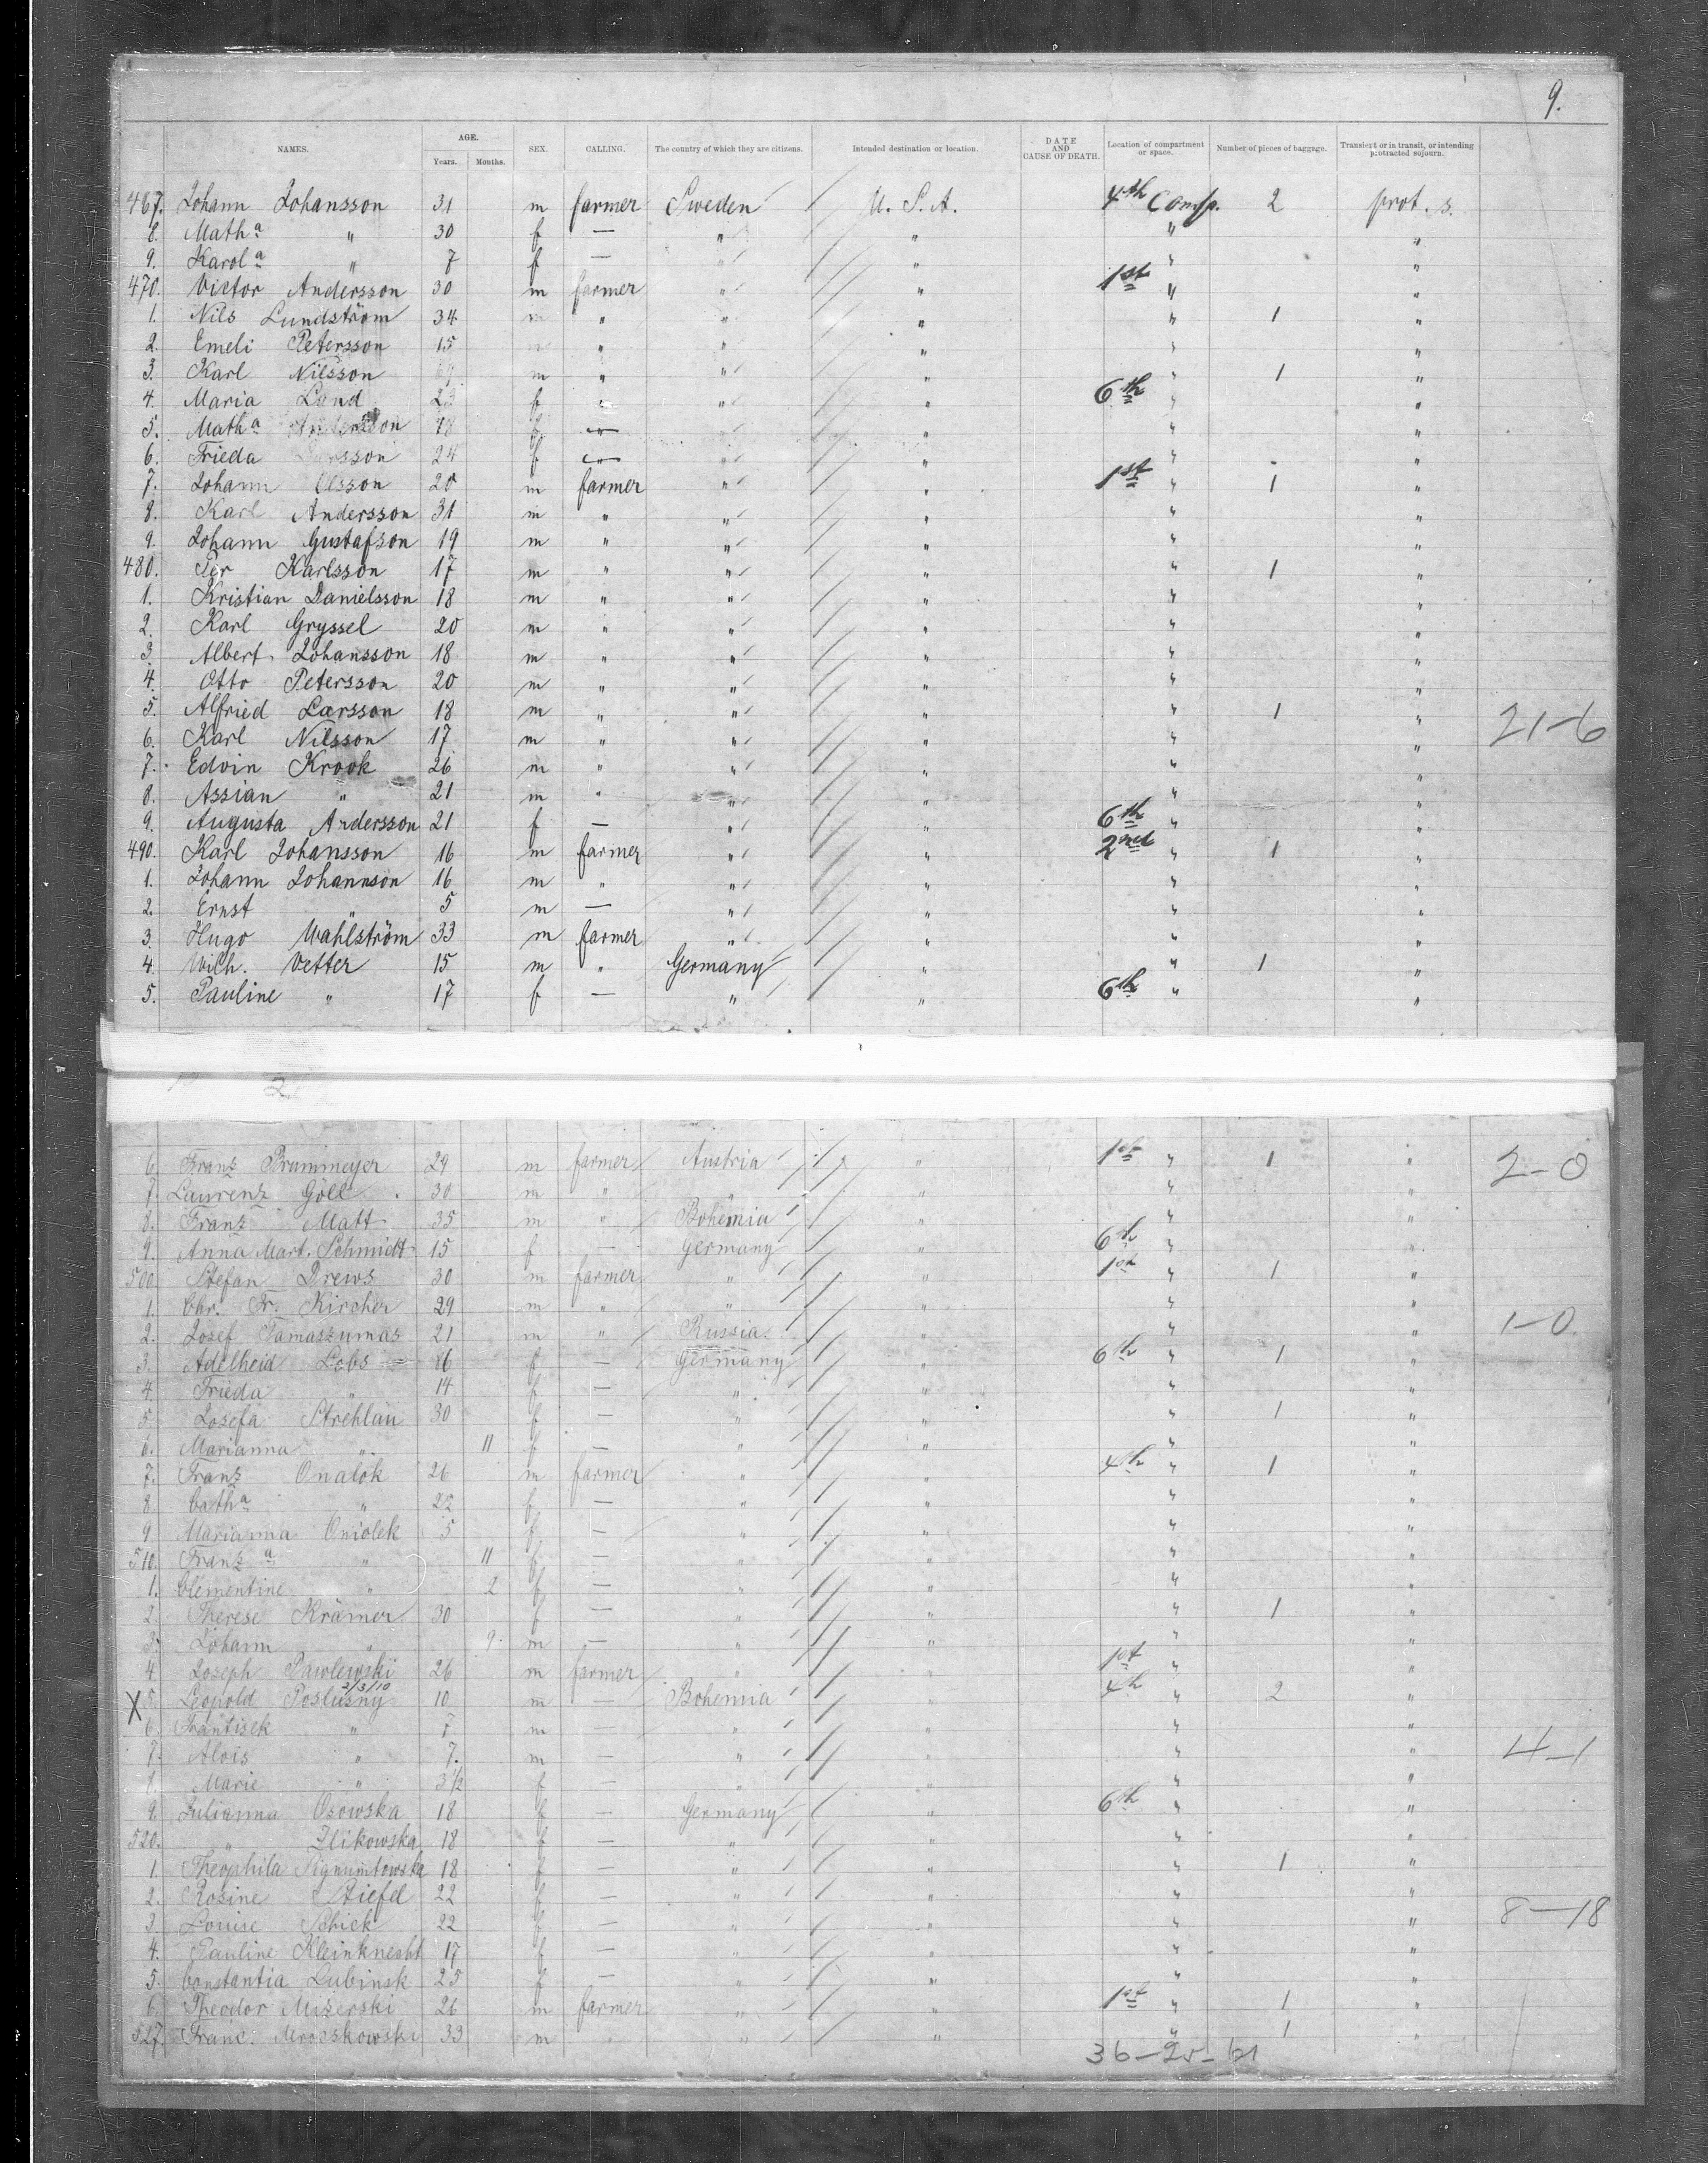 9.
NAMES. AGE. Years. Months. SEX. CALLING. The country of which they are citizens. Intended destination or location. DATE AND CAUSE OF DEATH. Location of compartment or space. Number of pieces of baggage. Transient or in transit, or intending protracted sojourn.
467. Johann Johansson 31 m farmer Sweden U. S. A. 4th Comp. 2 prot. s.
8. Matha " 30 f — " " " "
9. Karola " 7 f — " " " "
470. Victor Andersson 30 m farmer " " 1st " "
1. Nils Lundström 34 m " " " " 1 "
2. Emeli Petersson 15 m " " " " "
3. Karl Nilsson m " " " " 1 "
4. Maria Lund 23 f " " " 6th " "
5. Matha Andersson 18 f " " " " "
6. Frieda 24 f " " " " "
7. Johann Olsson 20 m farmer " " 1st " 1 "
8. Karl Andersson 31 m " " " " "
9. Johann Gustafson 19 m " " " " "
480. Per Karlsson 17 m " " " " 1 "
1. Kristian Danielsson 18 m " " " " "
2. Karl Gryssel 20 m " " " " "
3. Albert Johansson 18 m " " " " "
4. Otto Petersson 20 m " " " " "
5. Alfried Larsson 18 m " " " " 1 " 21-6
6. Karl Nilsson 17 m " " " " "
7. Edvin Krook 26 m " " " " "
8. Assian " 21 m " " " " "
9. Augusta Andersson 21 f — " " 6th " "
490. Karl Johansson 16 m farmer " " 2nd " 1 "
1. Johann Johannson 16 m " " " " "
2. Ernst " 5 m — " " " "
3. Hugo Wahlström 33 m farmer " " " "
4. Wilh. Vetter 15 m " Germany " " 1 "
5. Pauline " 17 f — " " 6th " "
6. Franz Prummeyer 29 m farmer Austria " 1st " 1 " 2-0
7. Laurenz Göll 30 m " " " " "
8. Franz Matt 35 m " Bohemia " " "
9. Anna Mart. Schmidt 15 f — Germany " 6th " "
500. Stefan Drews 30 m farmer " " 1st " 1 "
1. Chr. Fr. Kircher 29 m " " " " "
2. Josef Tamaszumas 21 m " Russia " " " 1-0.
3. Adelheid Lobs 16 f — Germany " 6th " 1 "
4. Frieda " 14 f — " " " "
5. Josefa Strehlau 30 f — " " " 1 "
6. Marianna " 11 f — " " " "
7. Franz Onalok 26 m farmer " " 4th " 1 "
8. Catha " 22 f — " " " "
9. Marianna Oniolek 5 f — " " " "
510. Franza " 11 f — " " " "
1. Clementine " 2 f — " " " "
2. Therese Krämer 30 f — " " " 1 "
3. Johann " 9 m — " " " "
4. Joseph Pawlewski 26 m farmer " " 1st " "
2/3/10
X 5. Leopold Poslusny 10 m — Bohemia " 4th " 2 "
6. Frantisek " 7 m — " " " "
7. Alois " 7. m — " " " " 4-1
8. Marie " 3½ f — " " " "
9. Julianna Osowska 18 f — Germany " 6th " "
520. " Zlikowska 18 f — " " " "
1. Theophila 18 f — " " " 1 "
2. Rosine Stiefel 22 f — " " " "
3. Louise Schick 22 f — " " " " 8-18
4. Pauline Kleinknesht 17 f — " " " "
5. Constantia Lubinsk 25 f — " " " "
6. Theodor Mizerski 26 m farmer " " 1st " 1 "
527. Franc. Mroczkowski 33 m " " " " 1 "
36-25-61